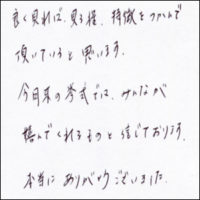 良く見れば、見る程、特徴をつかんで
頂いていると思います。
今日来の挙式では、みんなが
喜んでくれるものと信じております。
本当にありがとうございました。